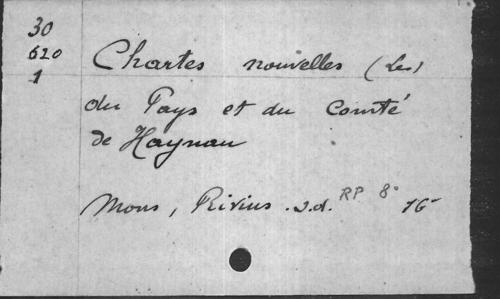 30
620
1
Chartes nouvelles (Les)
du Pays et du Comté
de Haynau
Mons, Rivius. s.d. RP 8° 16°